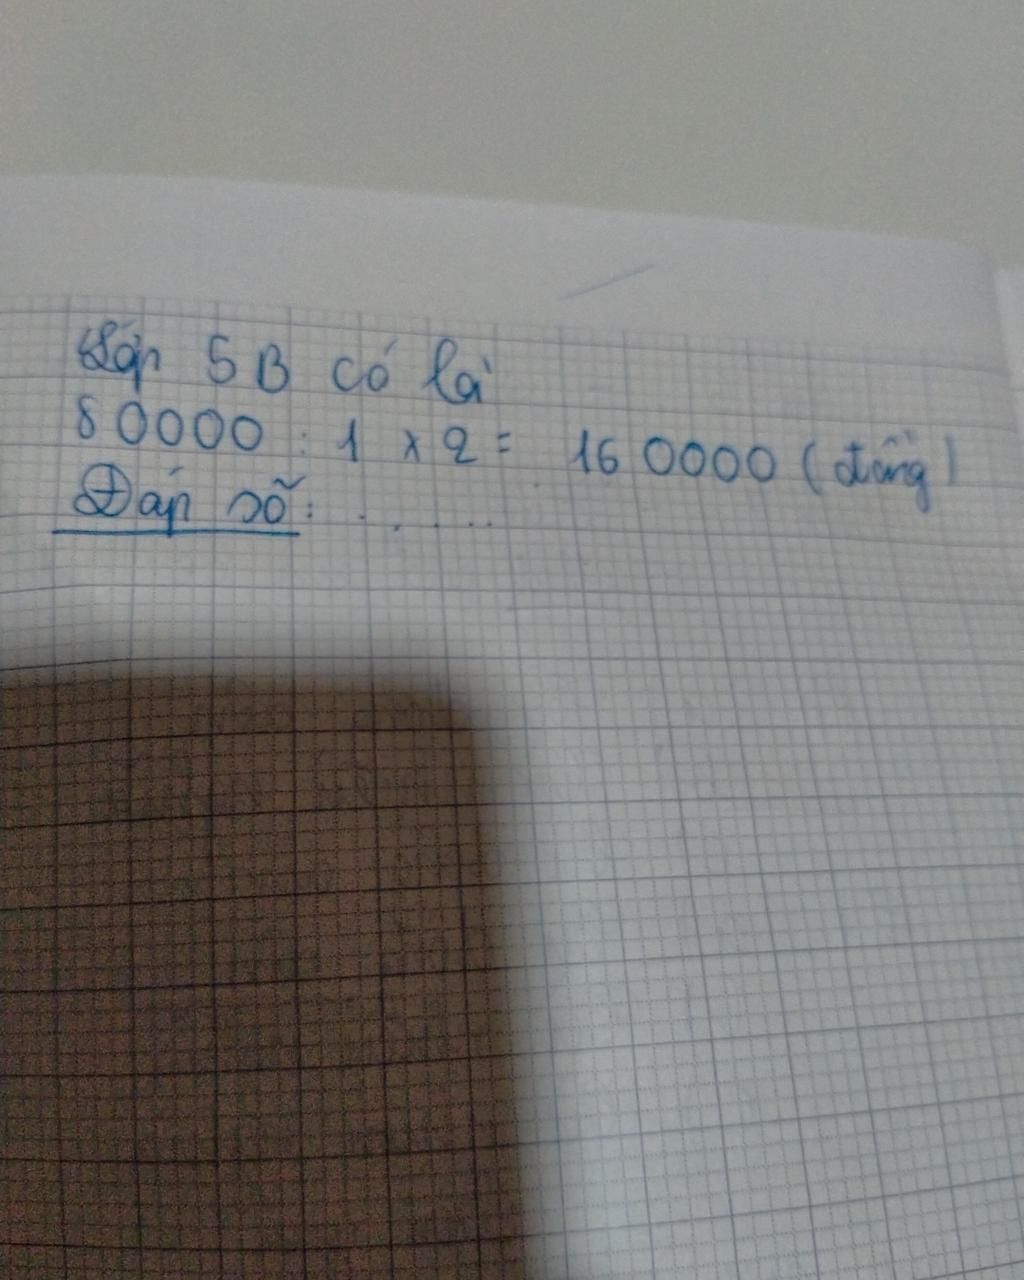 Lớp 5B có là
80000 : 1 x 2 = 160000 (đồng)
Đáp số: . . . . . .